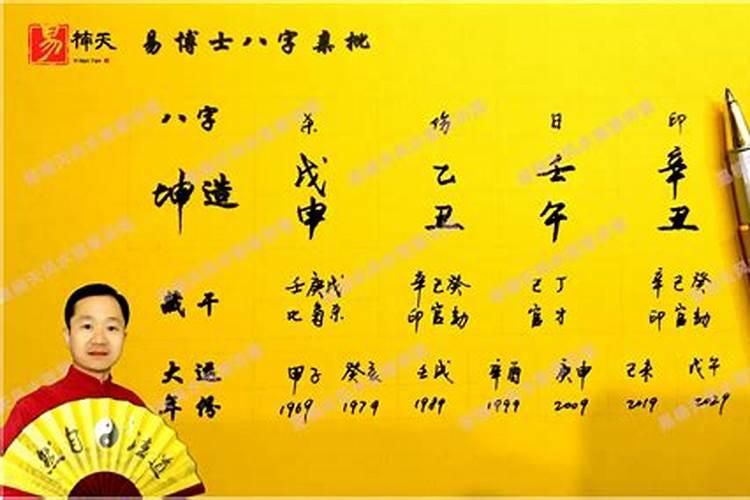 易
楠天
易博士八字集批
八字 杀 伤 日 印
坤造 戊 乙 壬 辛
申 丑 午 丑
藏干 壬庚戊 辛己癸 己丁 辛己癸
比枭杀 印官劫 官才 印官劫
大运 甲子 癸亥 壬戌 辛酉 庚申 己未 戊午
年份 1969 1979 1989 1999 2009 2019 2029
然自法道